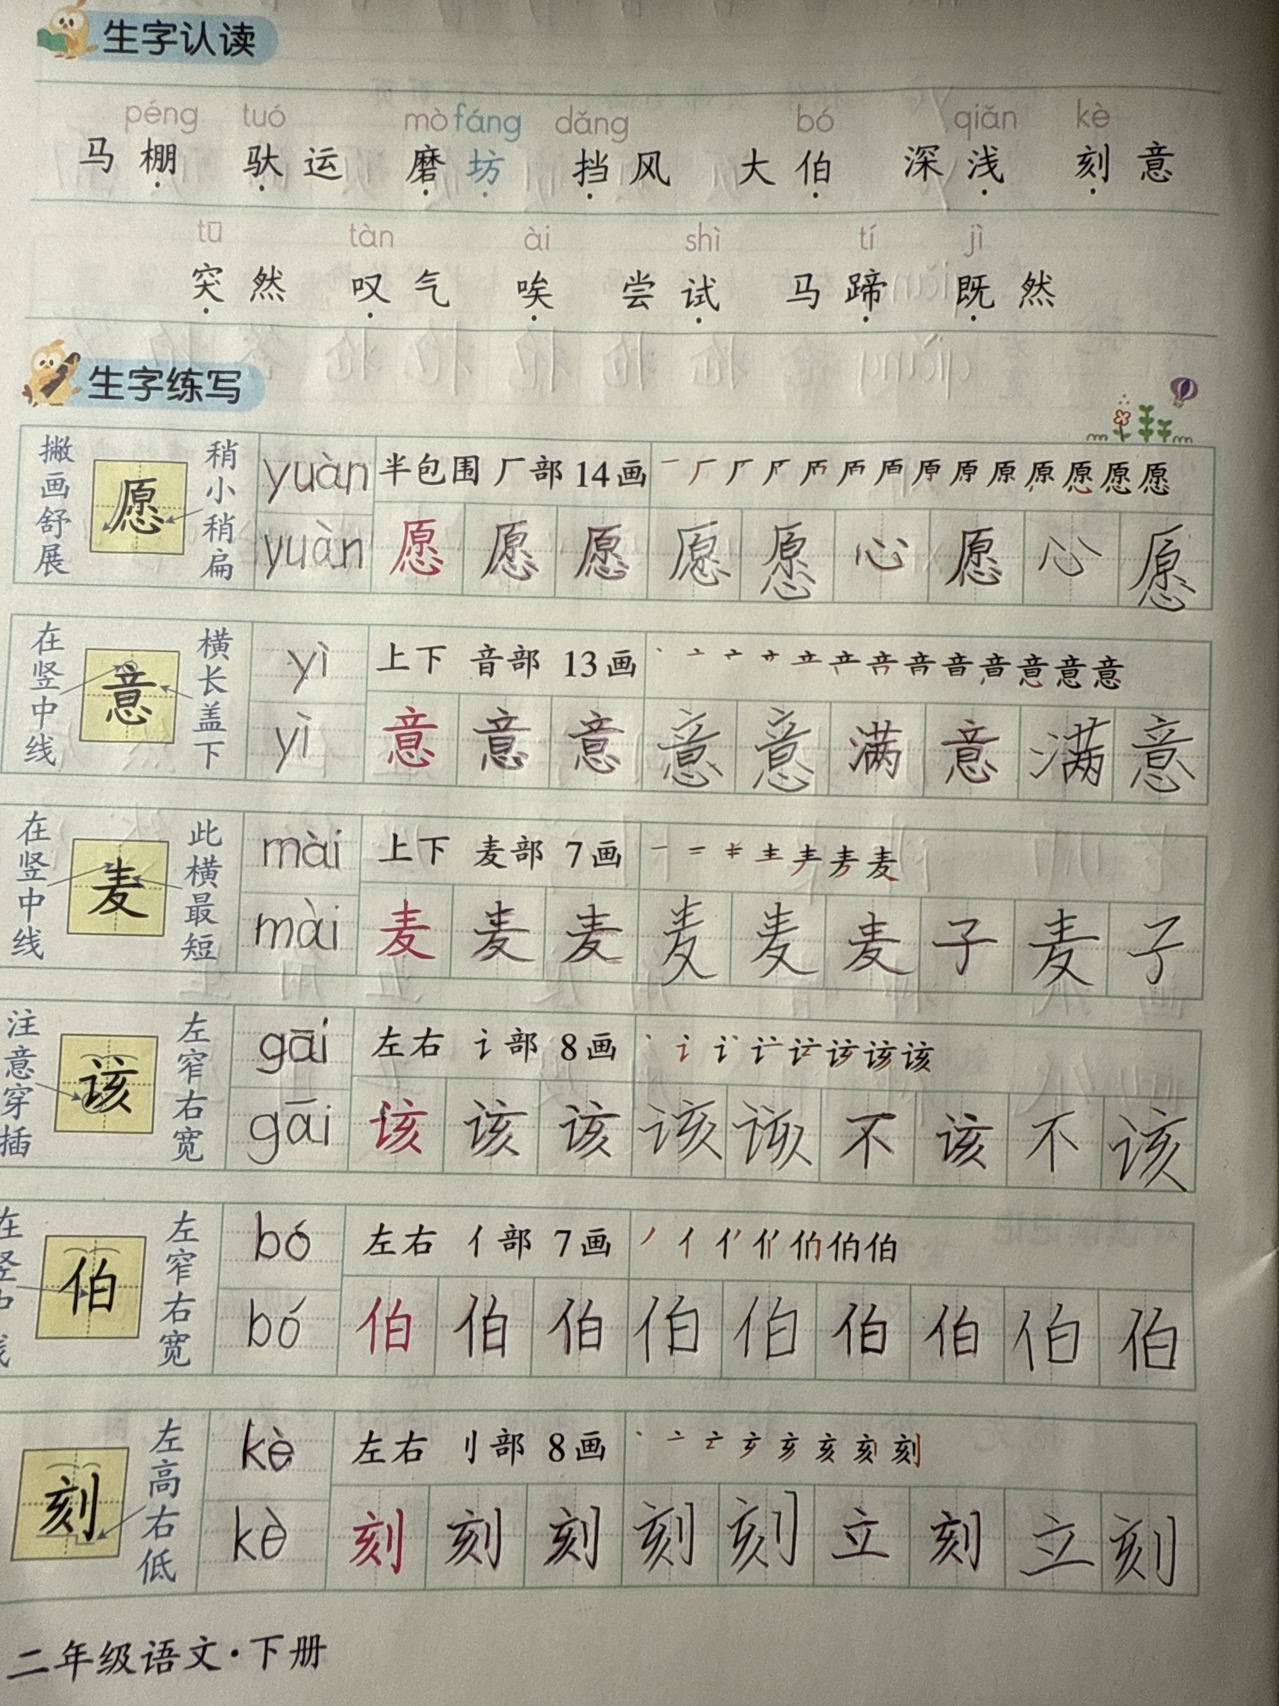 生字认读
péng tuó mò fáng dǎng bó qiǎn kè
马棚 驮运 磨坊 挡风 大伯 深浅 刻意
tū tàn ài shì tí jì
突然 叹气 唉 尝试 马蹄 既然
生字练写
撇画舒展 愿 稍小稍扁 yuàn 半包围 厂部 14画 一 厂 愿
yuàn 愿 愿 愿 愿 愿 心 愿 心 愿
在竖中线 意 横长盖下 yì 上下 音部 13画 意 意
yì 意 意 意 意 意 满 意 满 意
在竖中线 麦 此横最短 mài 上下 麦部 7画 一 二 キ 主 麦
mài 麦 麦 麦 麦 麦 麦 子 麦 子
注意穿插 该 左窄右宽 gāi 左右 讠部 8画 丶 讠 该
gāi 该 该 该 该 该 不 该 不 该
在竖中线 伯 左窄右宽 bó 左右 亻部 7画 丿 亻 伯 伯
bó 伯 伯 伯 伯 伯 伯 伯 伯 伯
刻 左高右低 kè 左右 刂部 8画 丶 亠 亥 刻
kè 刻 刻 刻 刻 刻 立 刻 立 刻
二年级语文·下册